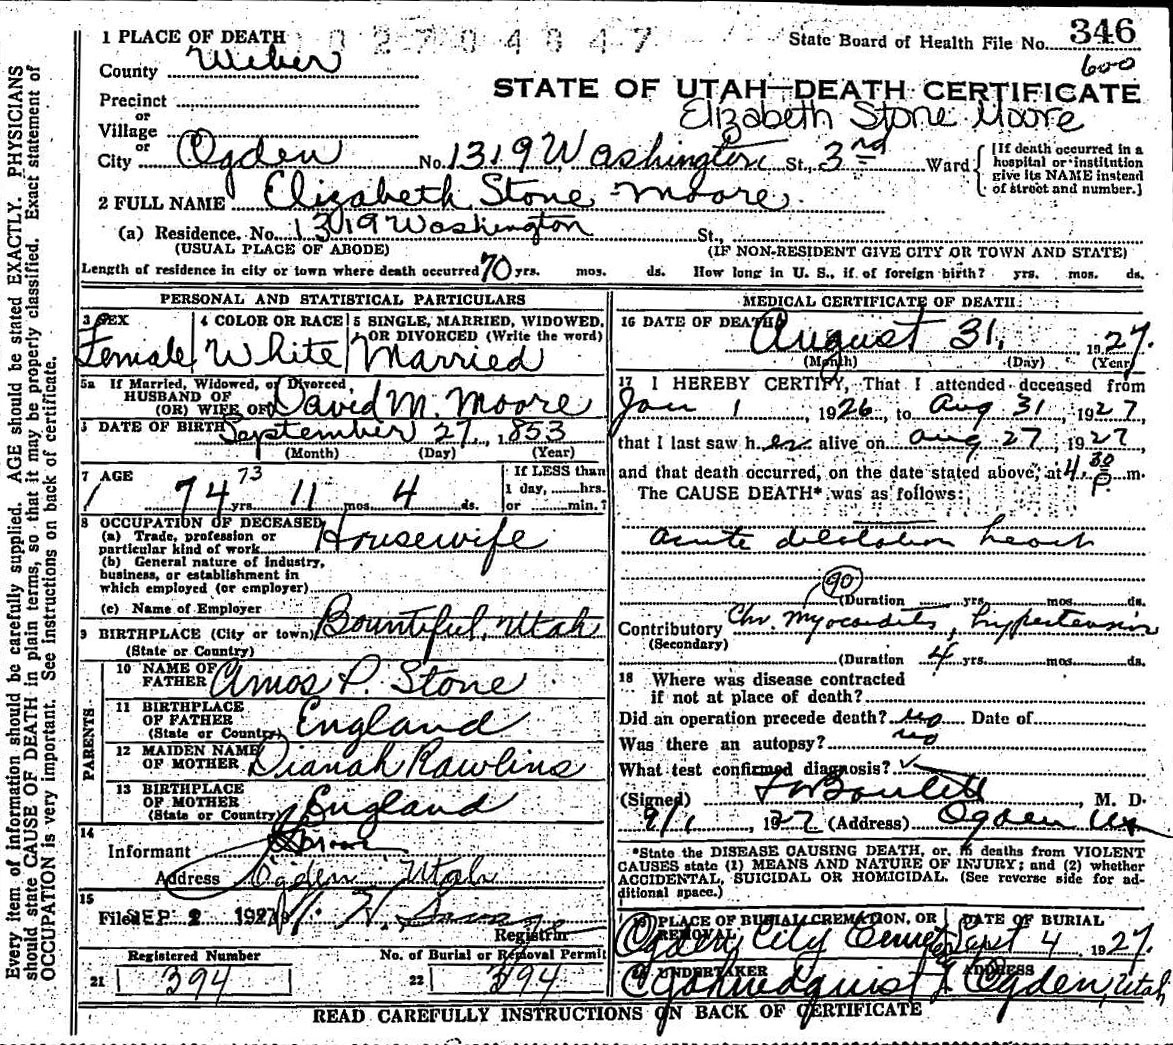 Every item of information should be carefully supplied. AGE should be stated EXACTLY. PHYSICIANS
should state CAUSE OF DEATH in plain terms, so that it may be properly classified. Exact statement of
OCCUPATION is very important. See instructions on back of certificate.
State Board of Health File No. 346
600
1 PLACE OF DEATH
County Weber
STATE OF UTAH—DEATH CERTIFICATE
Precinct
or
Elizabeth Stone Moore
Village
or
City Ogden No. 1319 Washington St., 3rd Ward
[If death occurred in a
hospital or institution
give its NAME instead
of street and number.]
2 FULL NAME Elizabeth Stone Moore.
(a) Residence. No. 1319 Washington St.,
(USUAL PLACE OF ABODE) (IF NON-RESIDENT GIVE CITY OR TOWN AND STATE)
Length of residence in city or town where death occurred 70 yrs. mos. ds. How long in U. S., if of foreign birth? yrs. mos. ds.
PERSONAL AND STATISTICAL PARTICULARS
3 SEX
Female
4 COLOR OR RACE
White
5 SINGLE, MARRIED, WIDOWED,
OR DIVORCED (Write the word)
Married
5a If Married, Widowed, or Divorced,
HUSBAND OF
(OR) WIFE OF David M. Moore
DATE OF BIRTH September 27, 1853
(Month) (Day) (Year)
7 AGE
74 73 yrs 11 mos 4 ds.
If LESS than
1 day, hrs.
or min.?
8 OCCUPATION OF DECEASED
(a) Trade, profession or
particular kind of work Housewife
(b) General nature of industry,
business, or establishment in
which employed (or employer)
(c) Name of Employer
9 BIRTHPLACE (City or town) Bountiful, Utah
(State or Country)
PARENTS
10 NAME OF
FATHER Amos P. Stone
11 BIRTHPLACE
OF FATHER England
(State or Country)
12 MAIDEN NAME
OF MOTHER Dianah Rawlins
13 BIRTHPLACE
OF MOTHER England
(State or Country)
14
Informant
Address Ogden Utah
15
Filed SEP 2 1927
Registrar
Registered Number
21 394
No. of Burial or Removal Permit
22 394
MEDICAL CERTIFICATE OF DEATH
16 DATE OF DEATH August 31, 1927.
(Month) (Day) (Year)
17 I HEREBY CERTIFY, That I attended deceased from
Jan 1 1926, to Aug 31 1927
that I last saw her alive on Aug 27, 1927
and that death occurred, on the date stated above, at 4.30 P. m.
The CAUSE DEATH* was as follows:
acute dilatation heart
90
(Duration yrs. mos. ds.
Contributory Chr. Myocarditis, hypertension
(Secondary)
(Duration 4 yrs. mos. ds.
18 Where was disease contracted
if not at place of death?
Did an operation precede death? no Date of
Was there an autopsy? no
What test confirmed diagnosis?
(Signed) , M. D.
9/1, 1927 (Address) Ogden Ut
*State the DISEASE CAUSING DEATH, or, in deaths from VIOLENT
CAUSES state (1) MEANS AND NATURE OF INJURY; and (2) whether
ACCIDENTAL, SUICIDAL OR HOMICIDAL. (See reverse side for ad-
ditional space.)
19 PLACE OF BURIAL CREMATION, OR
REMOVAL
Ogden City Cemetery
DATE OF BURIAL
Sept 4, 1927.
UNDERTAKER
ADDRESS
Ogden, Utah
READ CAREFULLY INSTRUCTIONS ON BACK OF CERTIFICATE